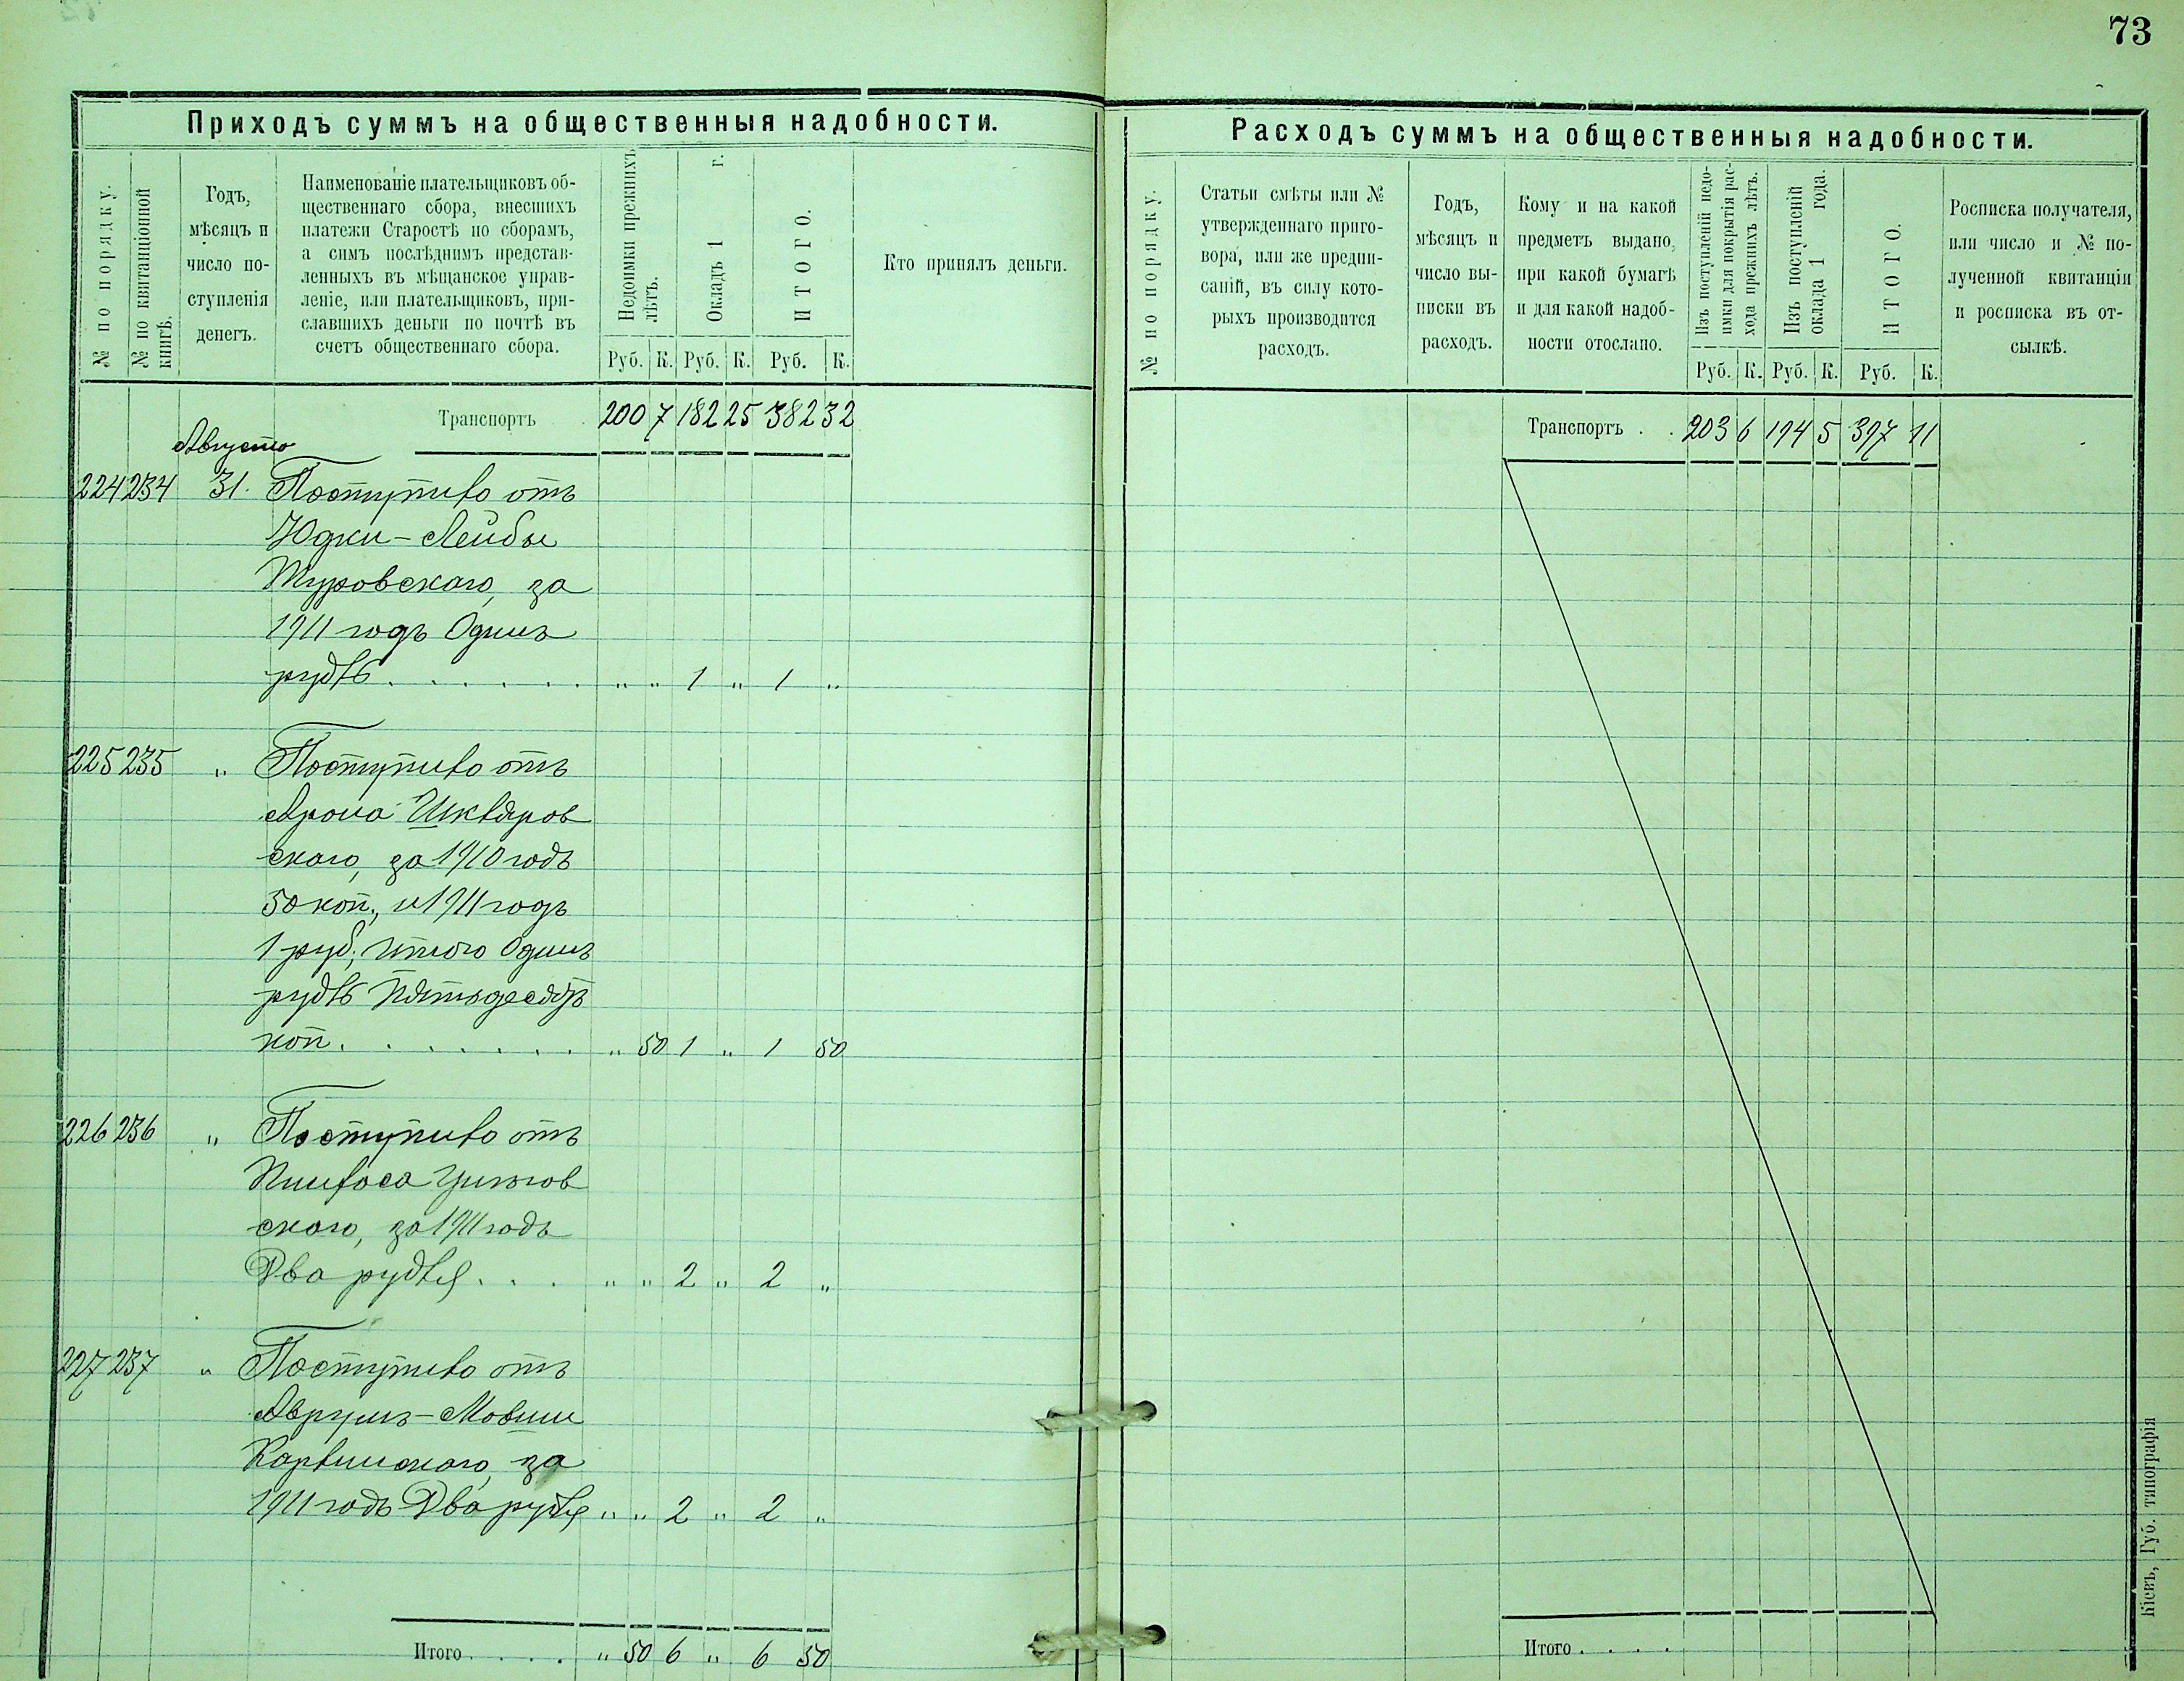 73
Приходъ суммъ на общественныя надобности.
№ по порядку.
№ по квитанціонной
книгѣ.
Годъ,
мѣсяцъ и
число по-
ступленія
денегъ.
Наименованіе плательщиковъ об-
щественнаго сбора, внесшихъ
платежи Старостѣ по сборамъ,
а симъ послѣднимъ представ-
ленныхъ въ мѣщанское управ-
леніе, или плательщиковъ, при-
славшихъ деньги по почтѣ въ
счетъ общественнаго сбора.
Недоимки прежнихъ
лѣтъ.
Окладъ 1 г.
ИТОГО.
Руб. К. Руб. К. Руб. К.
Кто принялъ деньги.
Транспортъ 200 7 182 25 382 32
Августъ
224 234 31. Поступило отъ
Юдки-Лейбы
Туровскаго, за
1911 годъ Одинъ
рубль . . . . . . „ „ 1 „ 1 „
225 235 „ Поступило отъ
Арона Шкляров
скаго, за 1910 годъ
50 коп., и 1911 годъ
1 руб., итого Одинъ
рубль пятьдесятъ
коп. . . . . . . „ 50 1 „ 1 50
226 236 „ Поступило отъ
Пинхоса
скаго, за 1911 годъ
Два рубля . . . „ „ 2 „ 2 „
227 237 „ Поступило отъ
Аврумъ-Мовши
Карлинскаго, за
1911 годъ Два рубля „ „ 2 „ 2 „
Итого . . . . „ 50 6 „ 6 50
Расходъ суммъ на общественныя надобности.
№ по порядку.
Статьи смѣты или №
утвержденнаго приго-
вора, или же предпи-
саній, въ силу кото-
рыхъ производится
расходъ.
Годъ,
мѣсяцъ и
число вы-
писки въ
расходъ.
Кому и на какой
предметъ выдано,
при какой бумагѣ
и для какой надоб-
ности отослано.
Изъ поступленій недо-
имки для покрытія рас-
хода прежнихъ лѣтъ.
Изъ поступленій
оклада 1 года.
ИТОГО.
Руб. К. Руб. К. Руб. К.
Росписка получателя,
или число и № по-
лученной квитанціи
и росписка въ от-
сылкѣ.
Транспортъ . . 203 6 194 5 397 11
Итого . . . .
Кіевъ, Губ. типографія